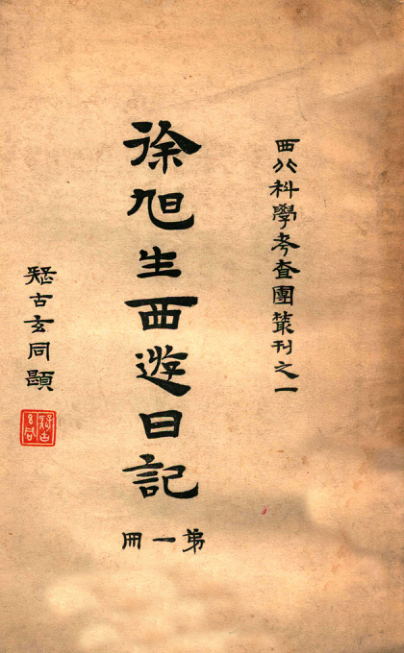 西北科學考查團叢刊之一
徐旭生西遊日記
第一冊
疑古玄同題
疑古玄同